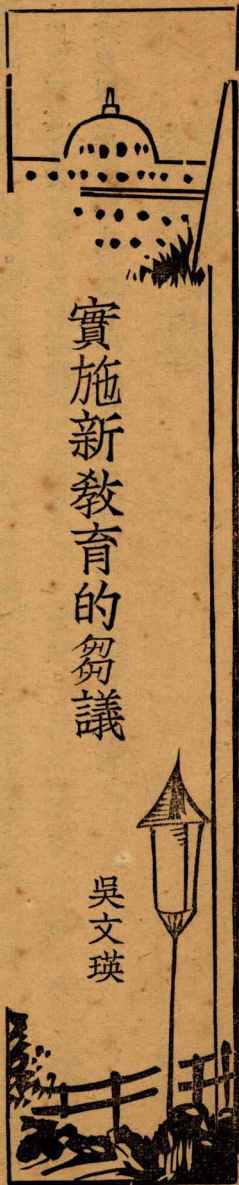 實施新教育的芻議
吳文瑛